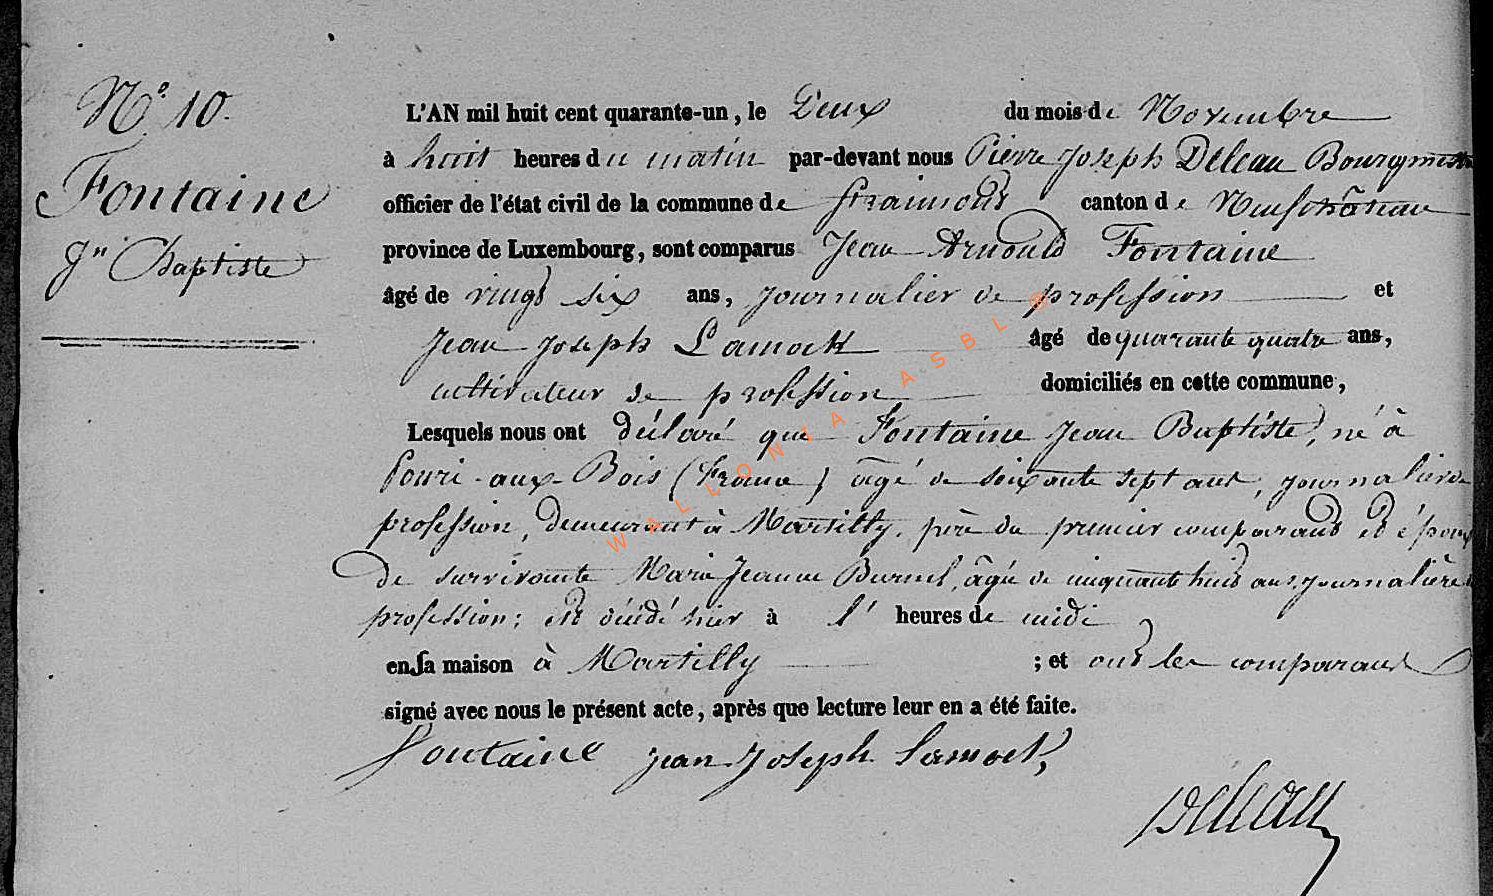 N° 10.
Fontaine
Jn Baptiste
L'AN mil huit cent quarante-un, le Deux du mois de Novembre
à huit heures du matin par-devant nous Pierre Joseph Deleau Bourgmestre
officier de l'état civil de la commune de Straimont canton de Neufchâteau
province de Luxembourg, sont comparus Jean Arnould Fontaine
âgé de vingt six ans, journalier de profession et
Jean Joseph Lamock âgé de quarante quatre ans,
cultivateur de profession domiciliés en cette commune,
Lesquels nous ont déclaré que Fontaine Jean Baptiste, né à
Pouri-aux-Bois (France) âgé de soixante sept ans, journalier de
profession, demeurant à Martilly, père du premier comparant et époux
de survivante Marie Jeanne Burnel, âgée de cinquante huit ans, journalière de
profession; est décédé hier à l' heures de midi
en sa maison à Martilly ; et ont les comparant
signé avec nous le présent acte, après que lecture leur en a été faite.
Fontaine Jean Joseph Lamock,
Deleau
WALLONIA ASBL